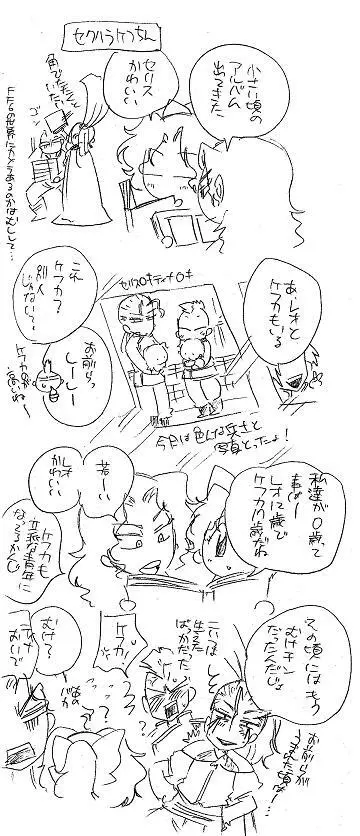 セクハラケフちん
小さい頃の
アルバム
出てきた
セリス
かわいい
角でたたくと
いたい
ゴン
FF6の世界にカメラあるのかはむしして…
あ、レオと
ケフカもいる
セリス0才ティナ0才
これ
ケフカ?
別人
じゃない?
お前ら
しーしー
ケフカが
来るわー
今日は色んな兵士と
写真とったよ!
私達が0歳て
事はー
レオ12歳で
ケフカ17歳だね
若い
レオ
かわいい
ケフカも
立派な青年に
なってるからし
その頃にはもう
むけチン
だったんだじょ
お前らが
うまれた頃は…!
こいつはし
生えた
ばっかだた
ケフカ!
むけ?
ティナ
おいで
あの
バカ